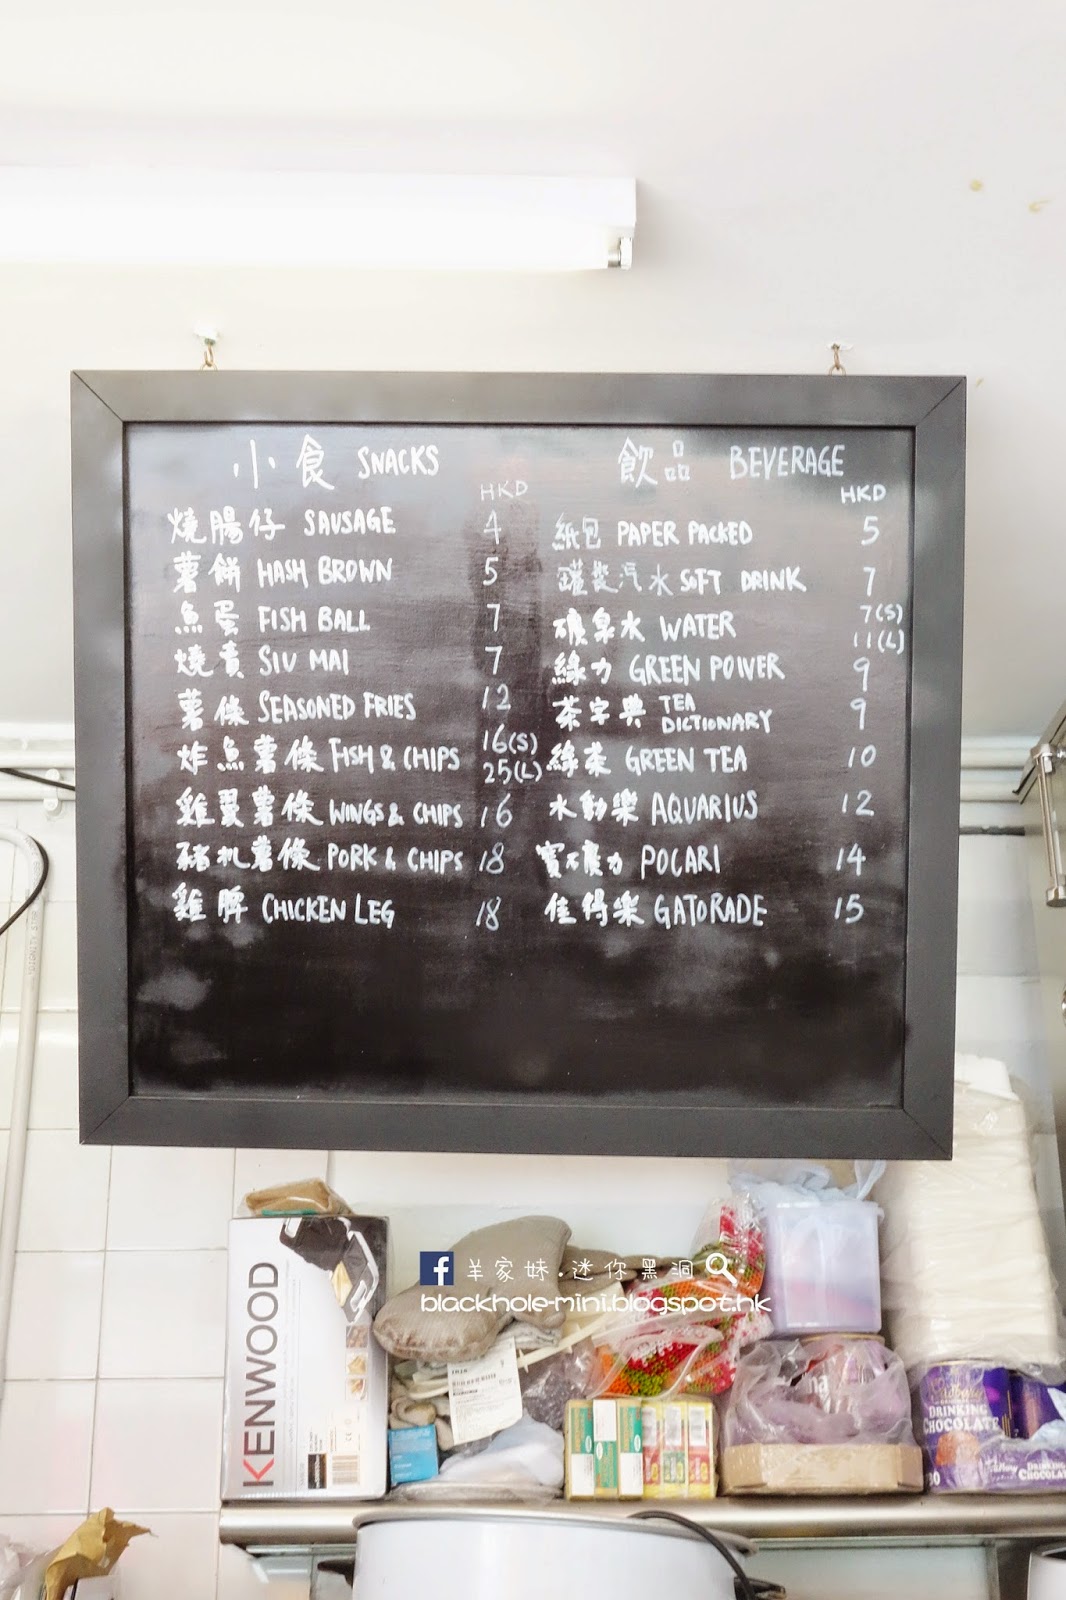 小食 SNACKS
HKD
燒腸仔 SAUSAGE 4
薯餅 HASH BROWN 5
魚蛋 FISH BALL 7
燒賣 SIU MAI 7
薯條 SEASONED FRIES 12
炸魚薯條 FISH & CHIPS 16(S)
25(L)
雞翼薯條 WINGS & CHIPS 16
豬扒薯條 PORK & CHIPS 18
雞脾 CHICKEN LEG 18
飲品 BEVERAGE
HKD
紙包 PAPER PACKED 5
罐裝汽水 SOFT DRINK 7
礦泉水 WATER 7(S)
11(L)
綠力 GREEN POWER 9
茶字典 TEA
DICTIONARY 9
綠茶 GREEN TEA 10
水動樂 AQUARIUS 12
寶礦力 POCARI 14
佳得樂 GATORADE 15
KENWOOD
f 羊家妹·迷你黑洞
blackhole-mini.blogspot.hk
Cadbury
DRINKING
CHOCOLATE